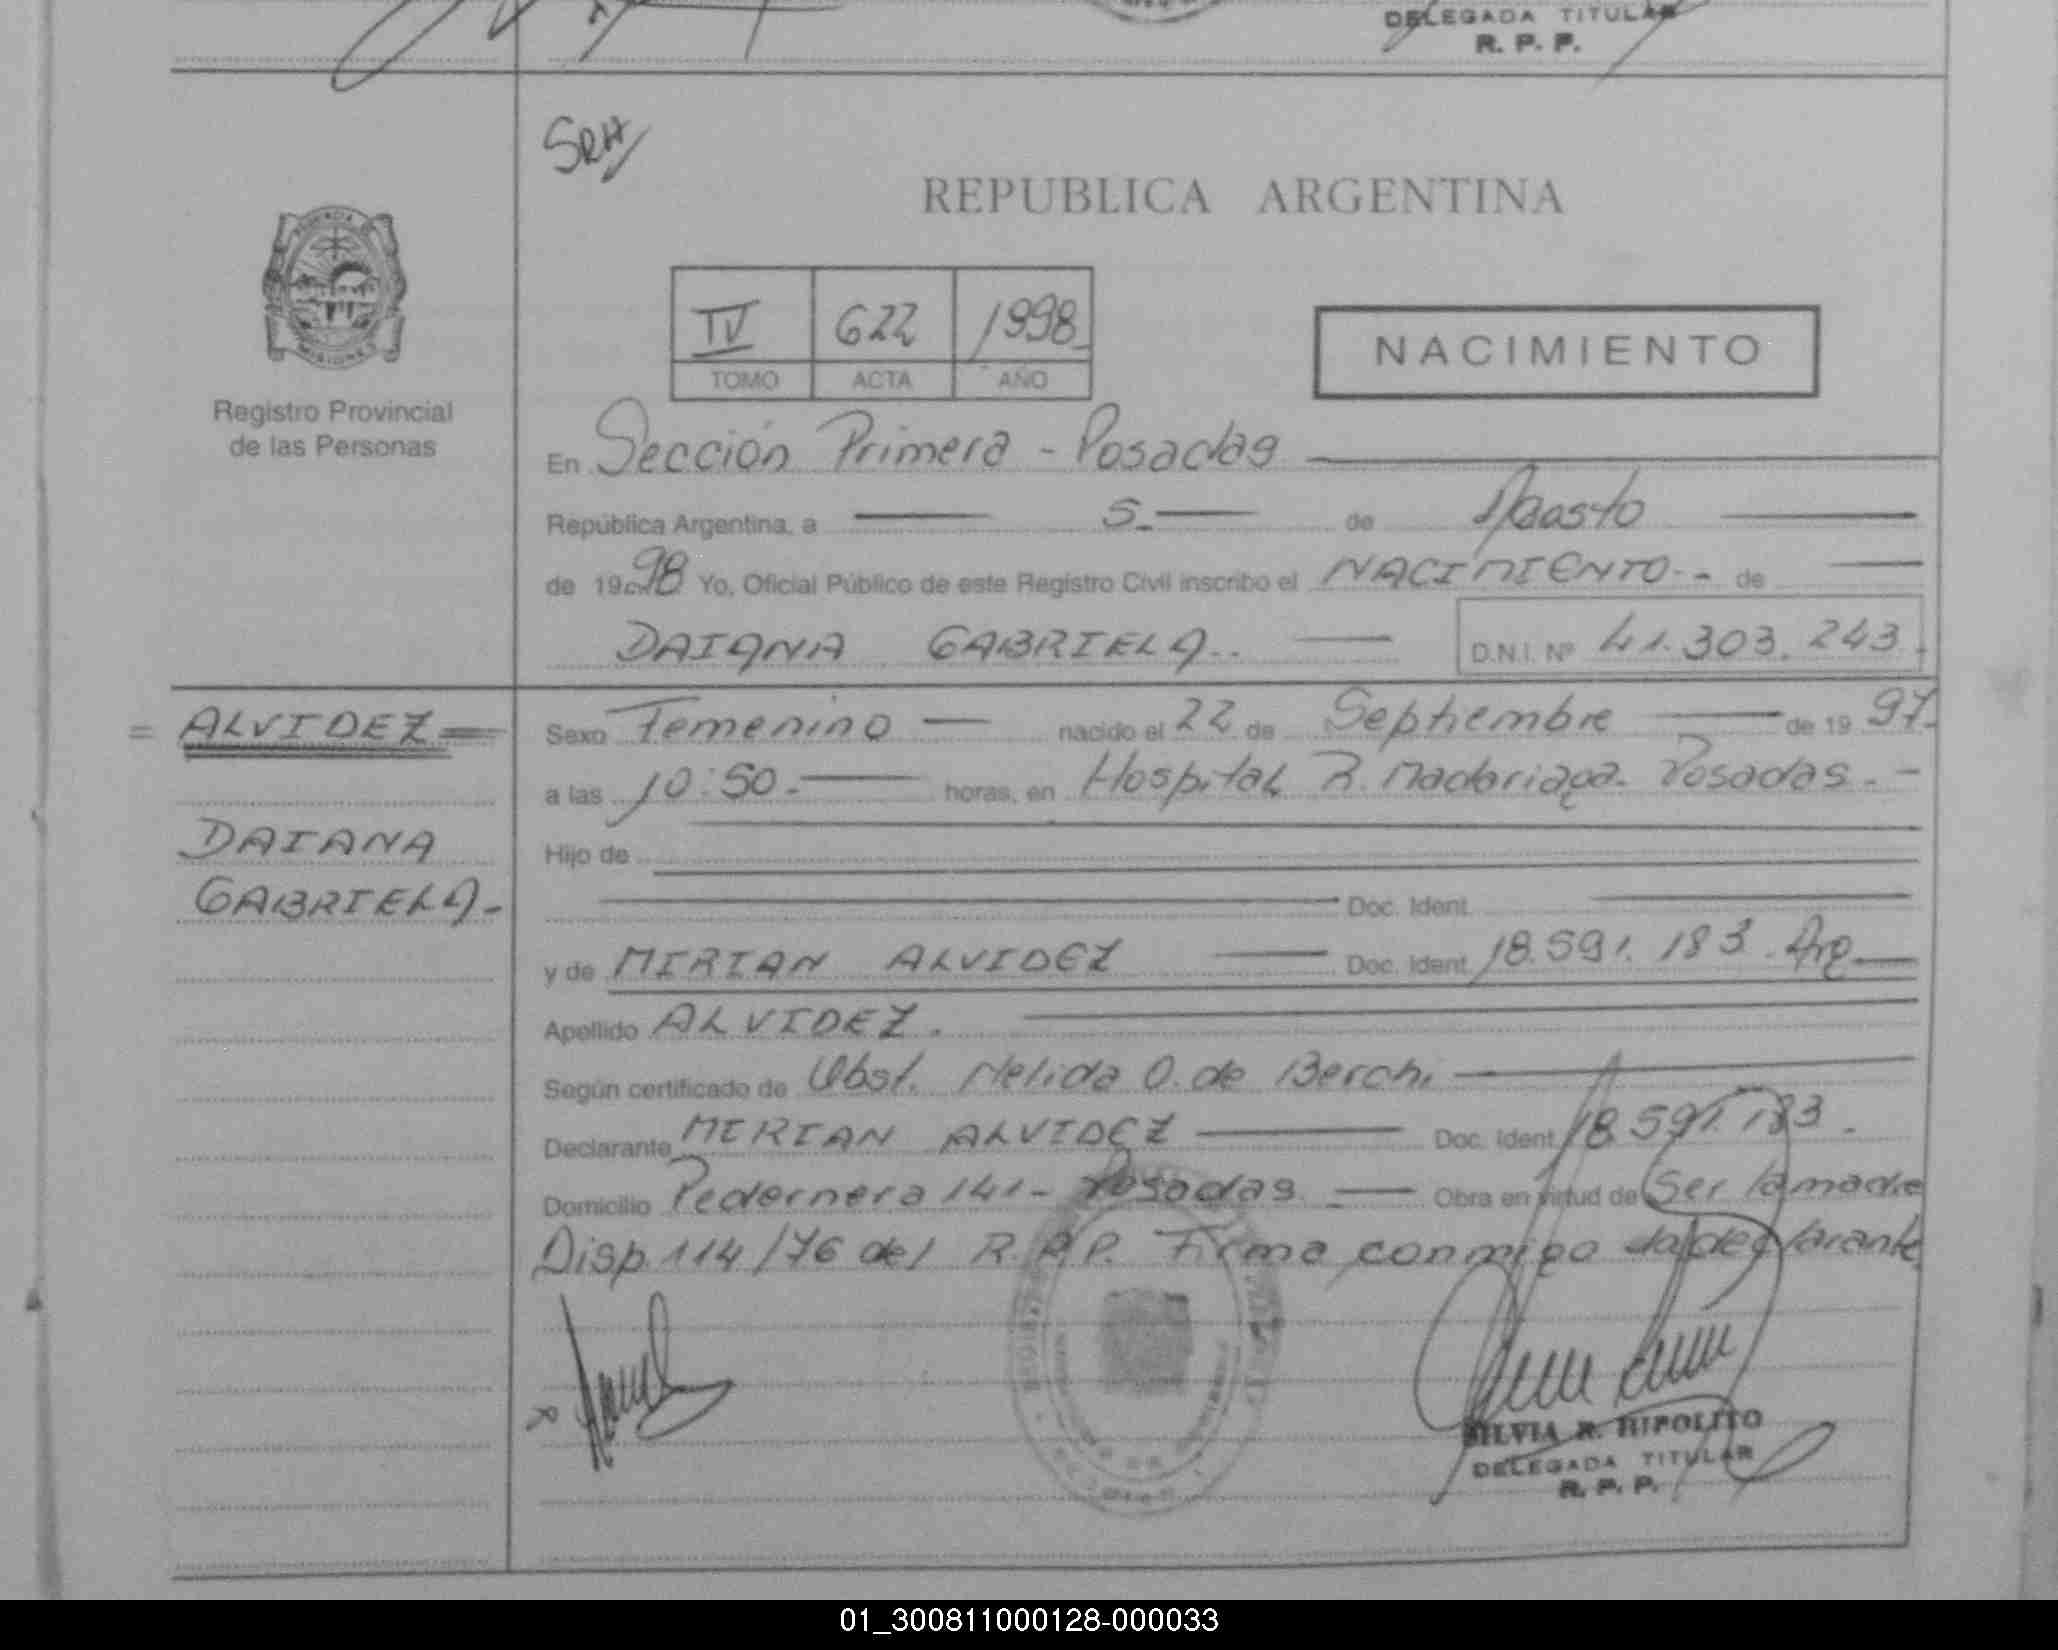 DELEGADA TITULAR
R. P. P.
SRH
REPUBLICA ARGENTINA
PROVINCIA
MISIONES
IV 622 1998
TOMO ACTA AÑO
NACIMIENTO
Registro Provincial
de las Personas
En Sección Primera - Posadas
República Argentina, a 5 de Agosto
de 19 98 Yo, Oficial Público de este Registro Civil inscribo el NACIMIENTO.- de
DAIANA GABRIELA.. D.N.I. Nº 41.303.243.
= ALVIDEZ =
DAIANA
GABRIELA-
Sexo Femenino nacido el 22 de Septiembre de 19 97.
a las 10:50.- horas, en Hospital R. Madariaga. Posadas.-
Hijo de
Doc. Ident.
y de MIRIAN ALVIDEZ Doc. Ident. 18.591.183. Arg
Apellido ALVIDEZ.
Según certificado de Obst. Nelida O. de Berchi
Declarante MIRIAN ALVIDEZ Doc. Ident. 18.591.183.
Domicilio Pedernera 141- Posadas. Obra en virtud de Ser la madre
Disp. 114/76 del R.P.P. Firma conmigo la declarante
SILVIA R. HIPOLITO
DELEGADA TITULAR
R. P. P.
01_300811000128-000033